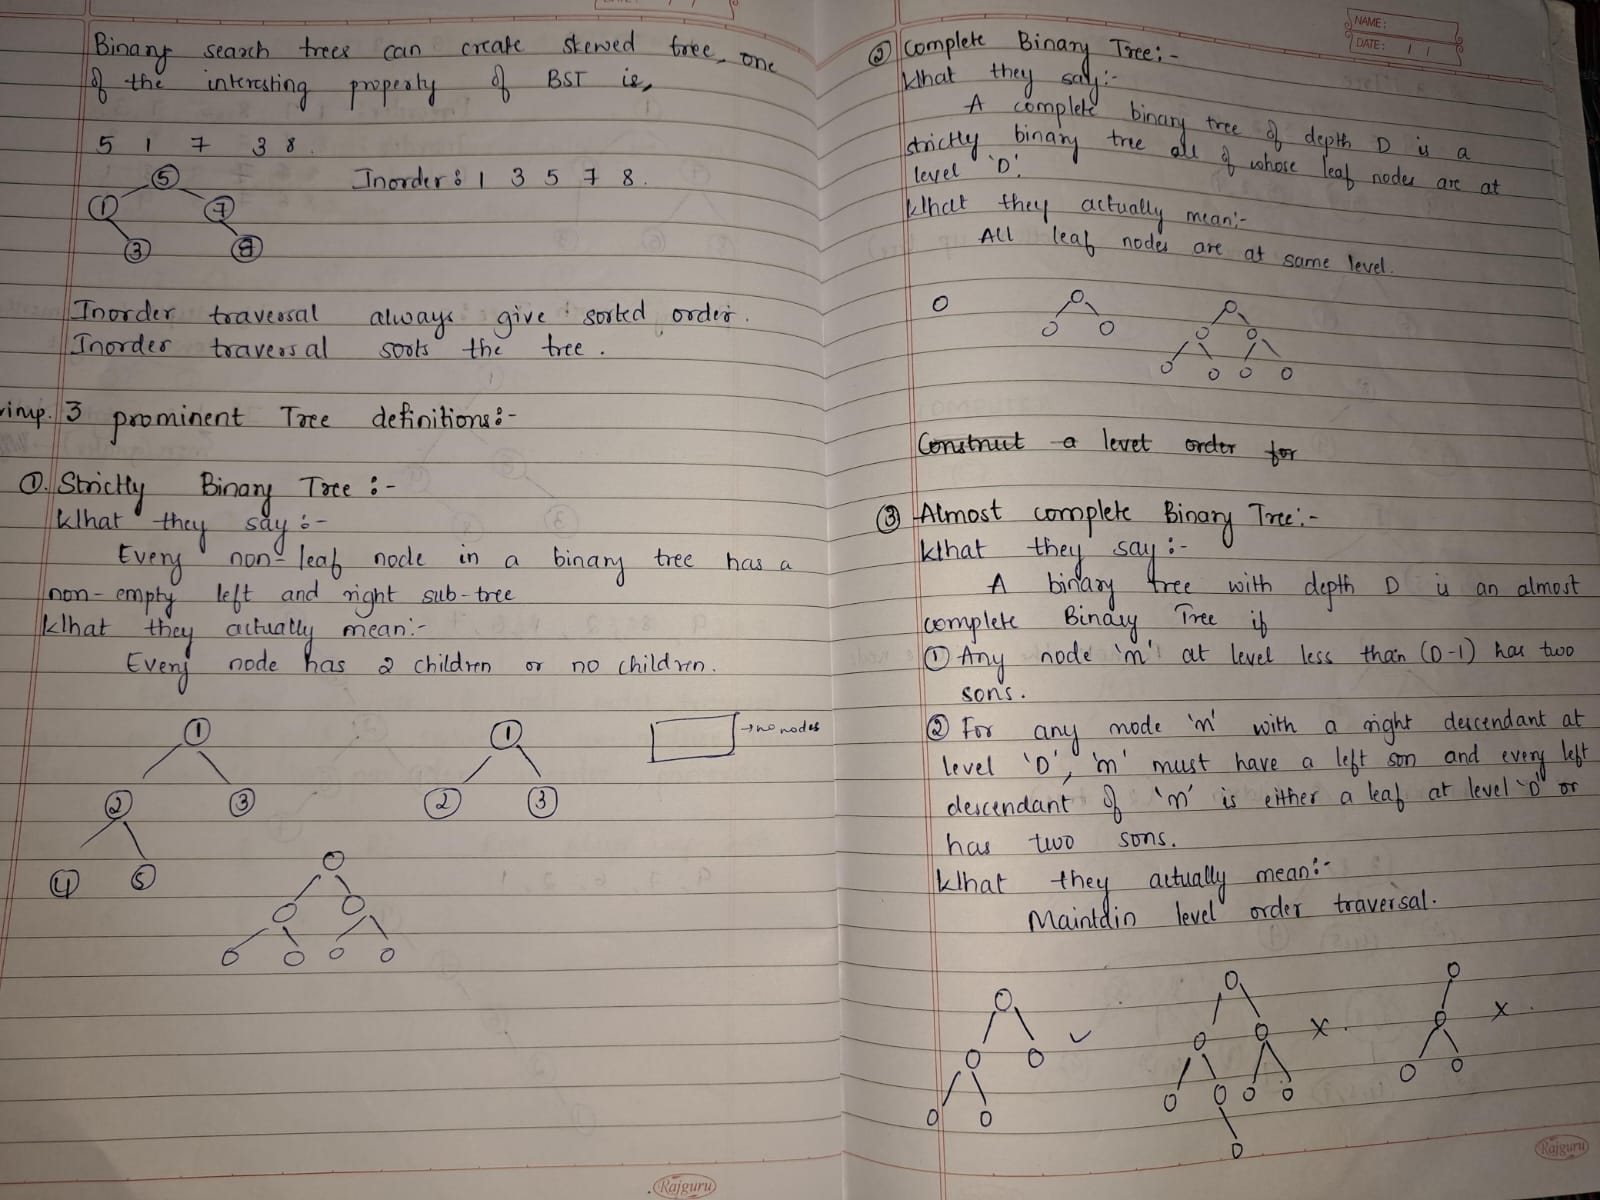 Binary search trees can create skewed tree, one
of the interesting property of BST is,
5 1 7 3 8.
5
Inorder: 1 3 5 7 8.
1 7
3 8
Inorder traversal always give sorted order.
Inorder traversal sorts the tree.
v.imp. 3 prominent Tree definitions:-
①. Strictly Binary Tree :-
What they say :-
Every non-leaf node in a binary tree has a
non-empty left and right sub-tree
What they actually mean:-
Every node has 2 children or no children.
1 1 → no nodes
2 3 2 3
4 5
Rajguru
NAME:
DATE: / /
② Complete Binary Tree:-
What they say:-
A complete binary tree of depth D is a
strictly binary tree all of whose leaf nodes are at
level 'D'.
What they actually mean:-
All leaf nodes are at same level.
Construct a level order for
③ Almost complete Binary Tree:-
What they say:-
A binary tree with depth D is an almost
complete Binary Tree if
① Any node 'n' at level less than (D-1) has two
sons.
② For any node 'n' with a right descendant at
level 'D', 'n' must have a left son and every left
descendant of 'n' is either a leaf at level 'D' or
has two sons.
What they actually mean:-
Maintain level order traversal.
✓ X. X.
Rajguru